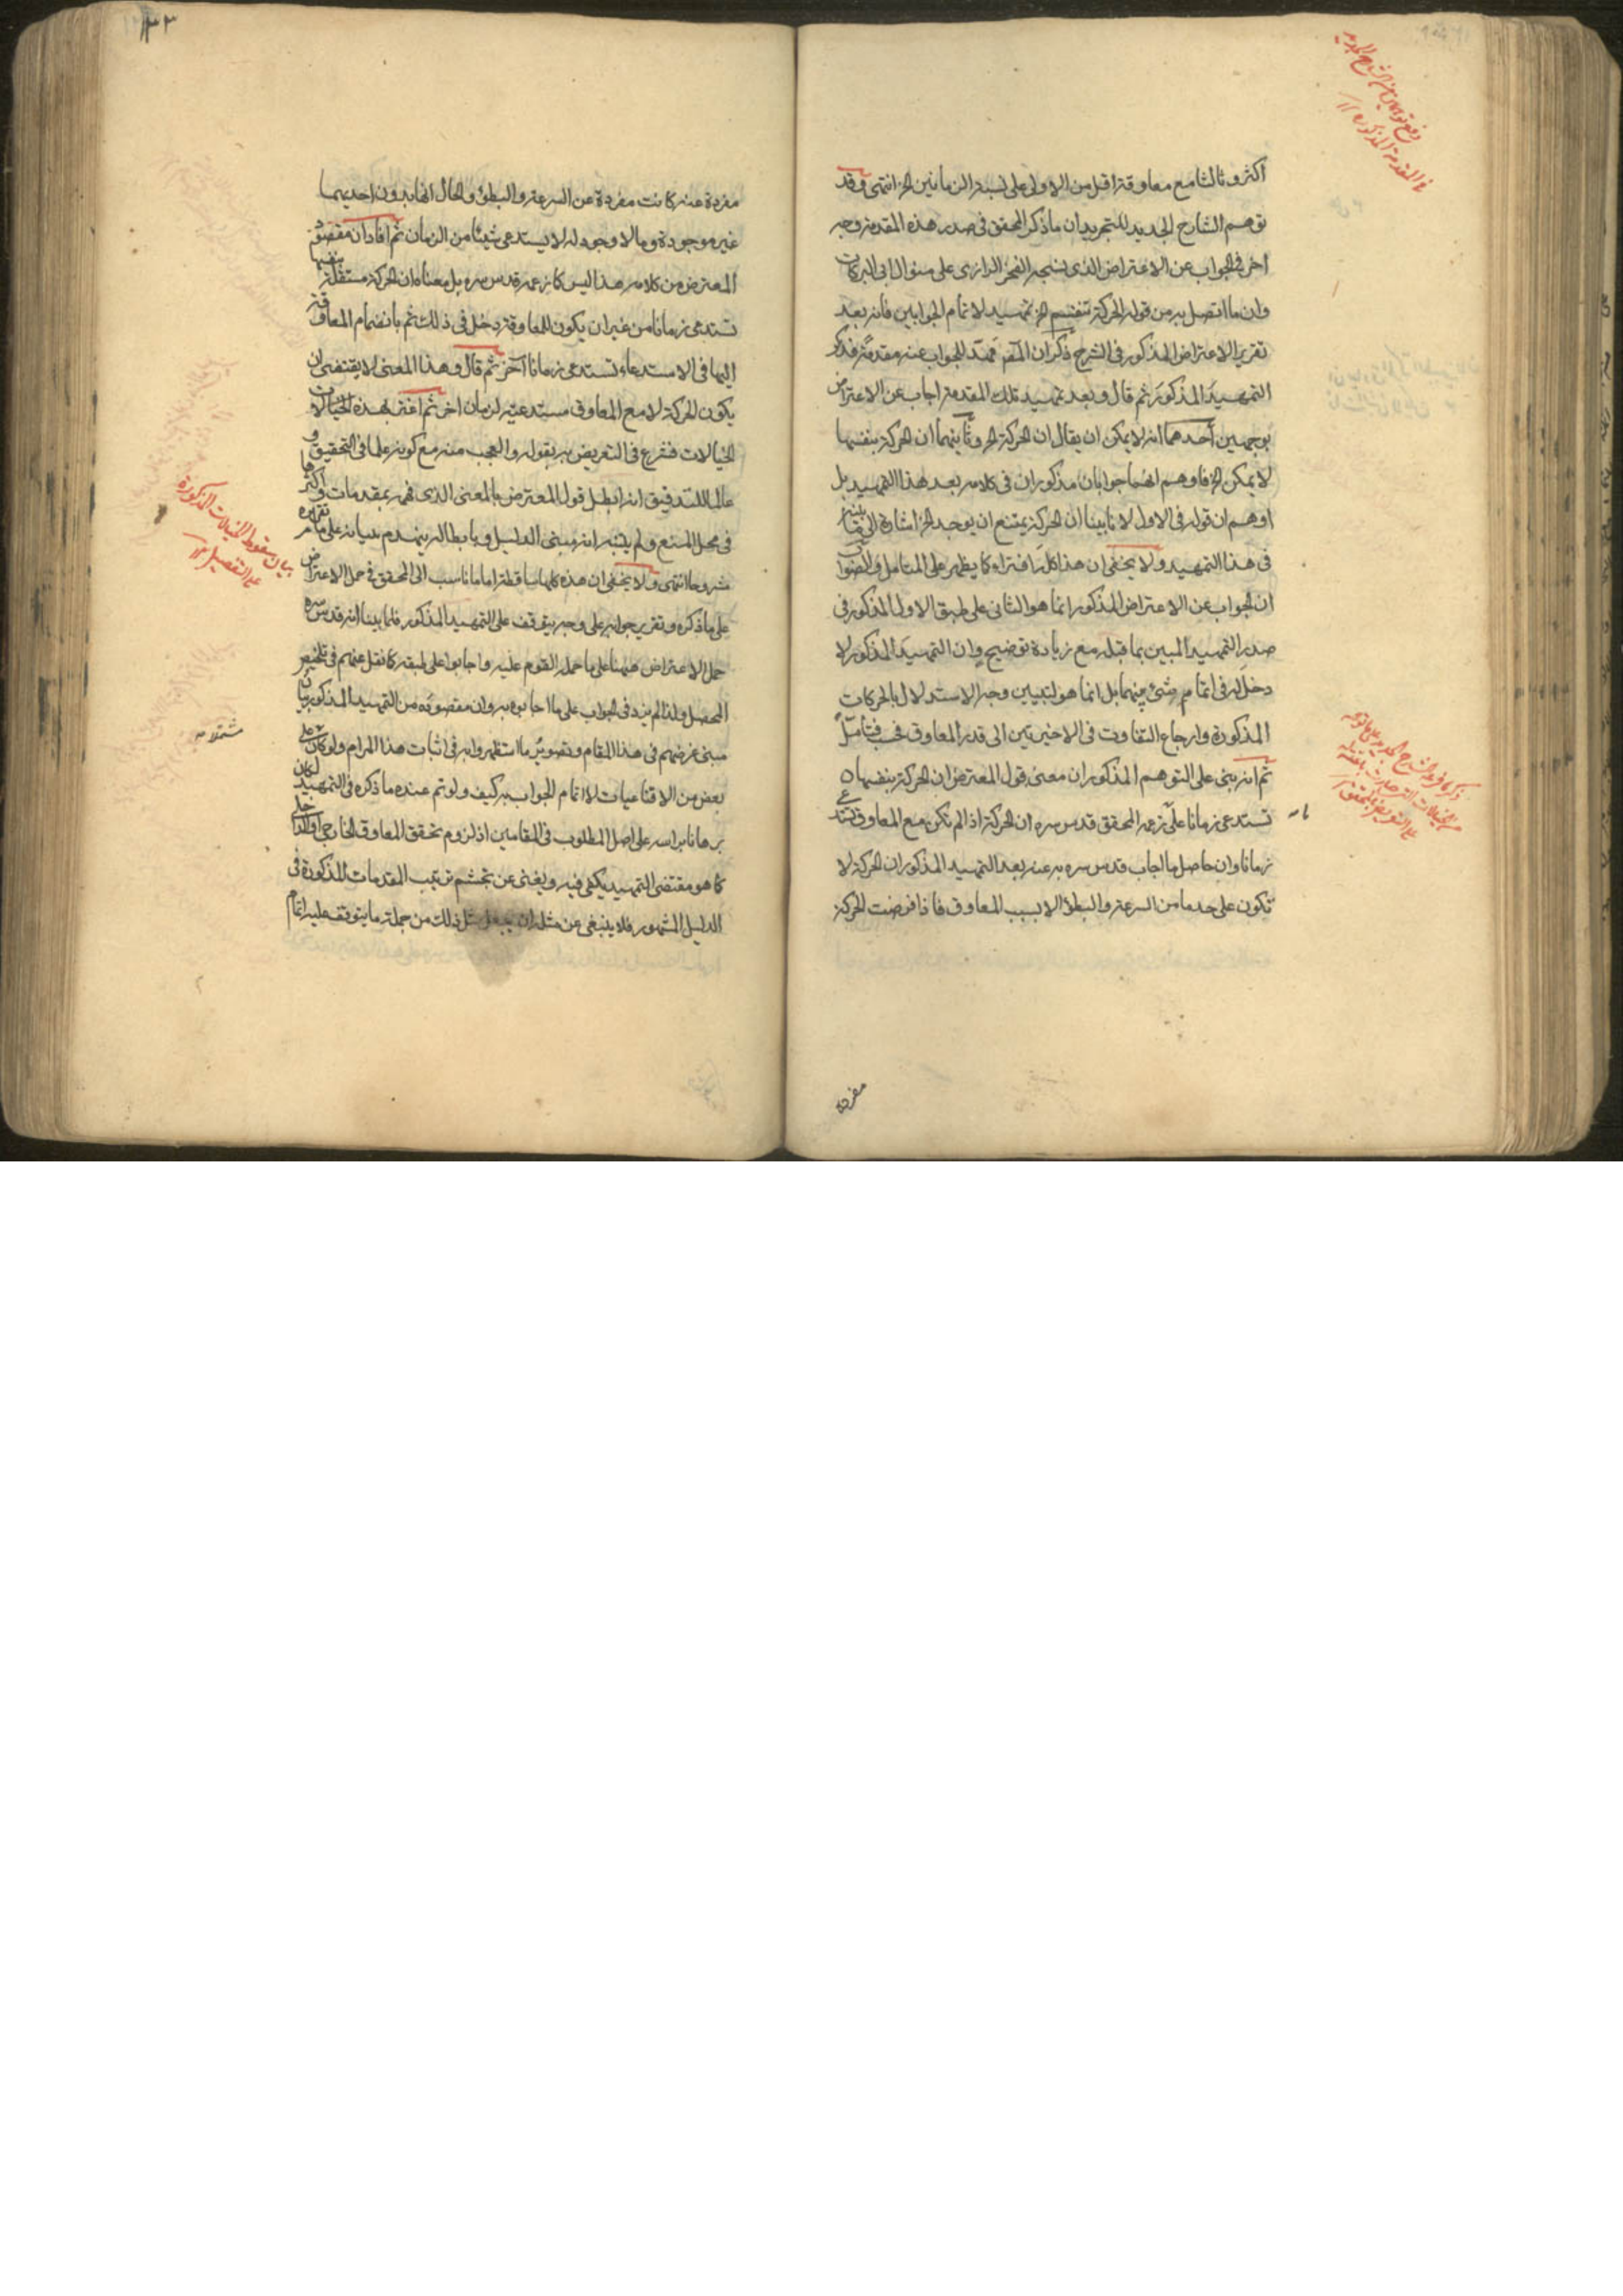 اكثر وثالثا مع معاوقة اقل من الاولى على نسبة الزمانين الخ انتهى وقد
توهم الشارح الجديد للتجريد ان ما ذكر المحقق فى صدر هذه المقدمة وجه
اخر فى الجواب عن الاعتراض الذى نسجه الفخر الرازى على منوال ابى البركات
وان ما اتصل به من قوله الحركة تنقسم الخ تمهيد لاتمام الجوابين فانه بعد
تقرير الاعتراض المذكور فى الشرح ذكر ان المص مهد للجواب عنه مقدمة فذكر
التمهيد المذكور ثم قال وبعد تمهيد تلك المقدمة اجاب عن الاعتراض
بوجهين أحدهما انه لا يمكن ان يقال ان الحركة الخ وثانيهما ان الحركة بنفسها
لا يمكن الخ فاوهم انهما جوابان مذكوران فى كلامه بعد هذا التمهيد بل
اوهم ان قوله فى الاول لانا بينا ان الحركة يمتنع ان يوجد الخ اشارة الى ما بينه
فى هذا التمهيد ولا يخفى ان هذا كله افتراء كما يظهر على المتامل والصواب
ان الجواب عن الاعتراض المذكور انما هو الثانى على طبق الاول المذكور فى
صدر التمهيد المبين بما قبله مع زيادة توضيح وان التمهيد المذكور لا
دخل له فى اتمام شئ منهما بل انما هو لتبيين وجه الاستدلال بالحركات
المذكورة وارجاع التفاوت فى الاخيرتين الى قدر المعاوق فحسب فتأمل
ثم انه بنى على التوهم المذكور ان معنى قول المعترض ان الحركة بنفسها
تستدعى زمانا على زعم المحقق قدس سره ان الحركة اذا لم تكن مع المعاوق تستدعى
زمانا وان حاصل ما اجاب قدس سره به عنه بعد التمهيد المذكور ان الحركة لا
تكون على حد ما من السرعة والبطؤ الا بسبب المعاوق فاذا فرضت الحركة
مفردة
مفردة عنه كانت مفردة عن السرعة والبطؤ والحال انها بدون احديهما
غير موجودة وما لا وجود له لا يستدعى شيئا من الزمان ثم افاد ان مقصود
المعترض من كلامه هذا ليس كما زعمه قدس سره بل معناه ان الحركة مستقلة بنفسها
تستدعى زمانا من غير ان يكون للمعاوقة دخل فى ذلك ثم بانضمام المعاوقة
اليها فى الاستدعاء تستدعى زمانا آخر ثم قال وهذا المعنى لا يقتضى ان
يكون الحركة لا مع المعاوق مستدعية لزمان اخر ثم اغتر بهذه الخيالات
فشرع فى التعريض به بقوله والعجب منه مع كونه علما فى التحقيق و
عالما للتدقيق انه ابطل قول المعترض بالمعنى الذى فهمه بمقدمات اكثرها
فى محل المنع ولم يتنبه انه مبنى الدليل وبابطاله ينهدم بنيانه على ما مر تقريره
مشروحا انتهى ولا يخفى ان هذه كلها ساقطة اما ما نسب الى المحقق فى حمل الاعتراض
على ما ذكره وتقرير جوابه على وجه يتوقف على التمهيد المذكور فلما بينا انه قدس سره
حمل الاعتراض ههنا على ما حمله القوم عليه واجابوا على طبقه كما نقل عنهم فى تلخيص
المحصل ولذا لم يزد فى الجواب على ما اجابوا به وان مقصوده من التمهيد المذكور بيان
مبنى غرضهم فى هذا المقام وتصوير ما استظهروا به فى اثبات هذا المرام ولو كان على
بعض من الاقناعيات لا اتمام الجواب به كيف ولو تم عنده ما ذكره فى التمهيد لكان
برهانا براسه على اصل المطلوب فى المقامين اذ لزوم تحقق المعاوق الخارجى او الداخلى
كما هو مقتضى التمهيد يكفى فيه ويغنى عن تجشم ترتيب المقدمات المذكورة فى
الدليل المشهور فلا ينبغى عن مثله ان يجعل مثل ذلك من جملة ما يتوقف عليه اتمام
بيان سقوط الخيالات المذكورة
على التفصيل